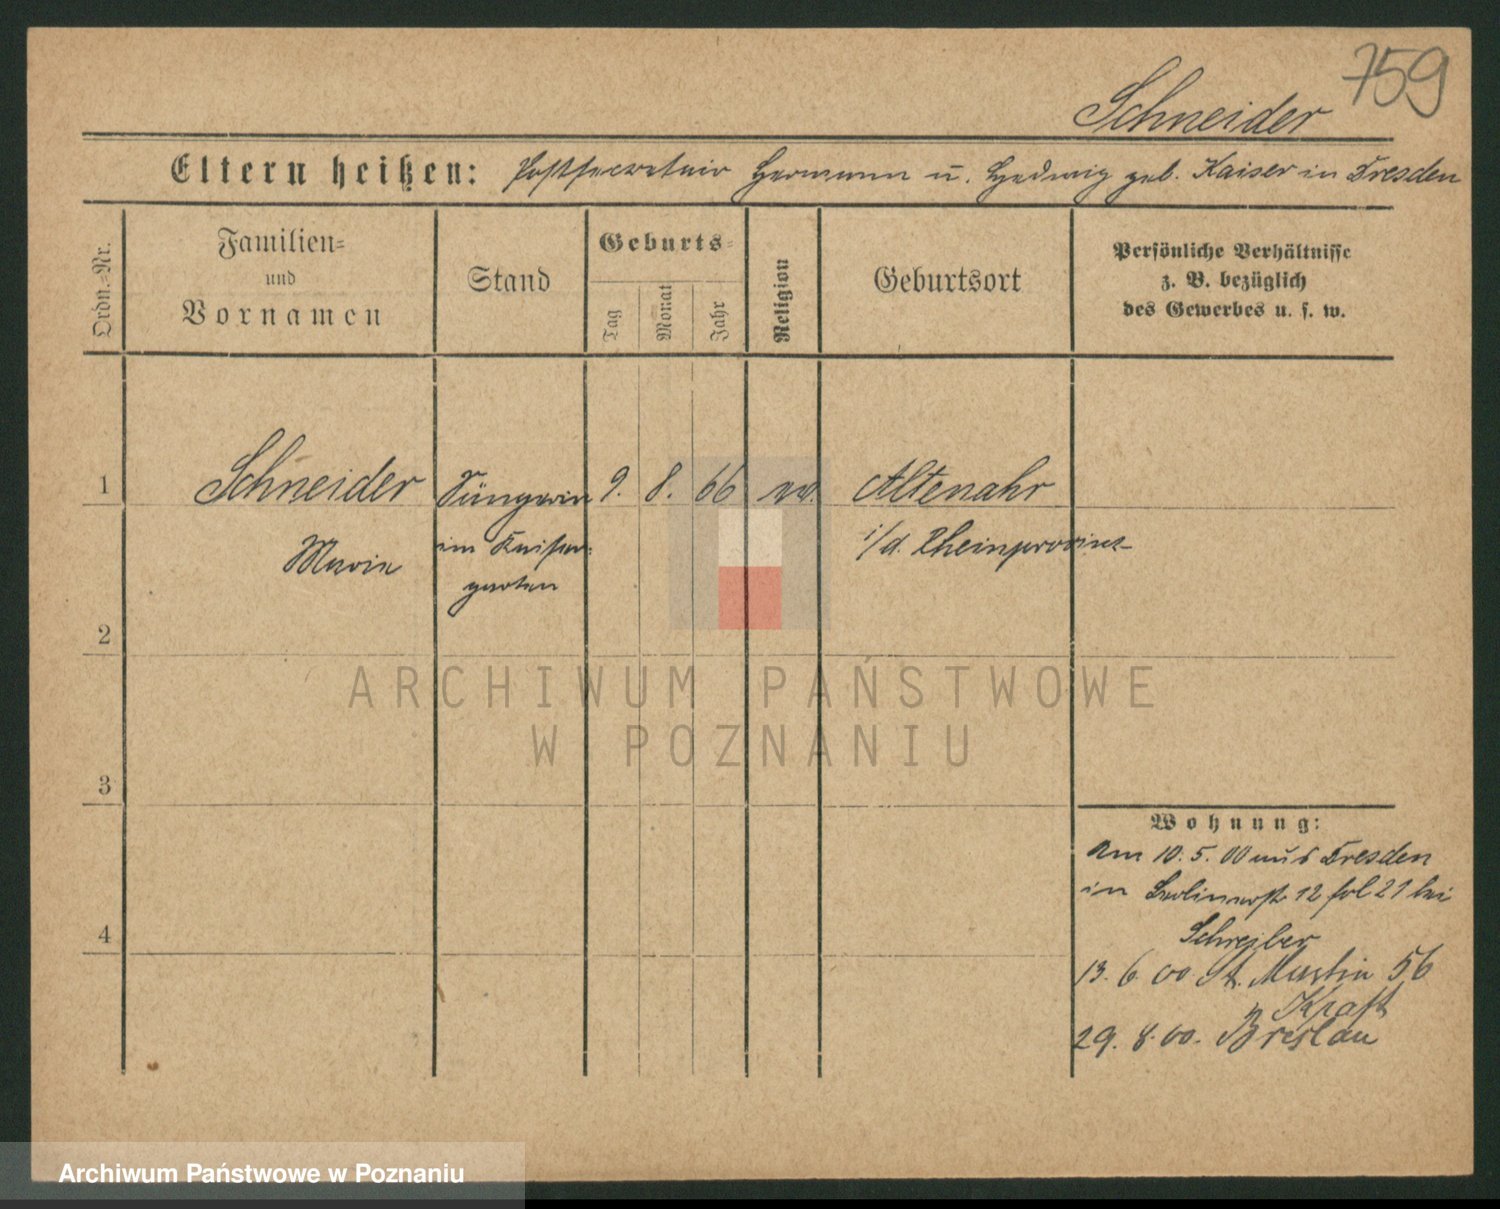 759
Schneider
Eltern heißen: Postsecretair Hermann u. Hedwig geb. Kaiser in Dresden
Ordn.-Nr.
Familien-
und
Vornamen
Stand
Geburts-
Tag
Monat
Jahr
Religion
Geburtsort
Persönliche Verhältnisse
z. B. bezüglich
des Gewerbes u. s. w.
1 Schneider Sängerin 9. 8. 66 Altenahr
Marie im Kaiser-
garten
i/d. Rheinprovinz
2
ARCHIWUM PAŃSTWOWE
W POZNANIU
3
Wohnung:
Am 10. 5. 00 aus Dresden
in Berlinerstr 12 bei
Schreiber
4
13. 6. 00. St. Martin 56
Kraft
29. 8. 00. Breslau
Archiwum Państwowe w Poznaniu